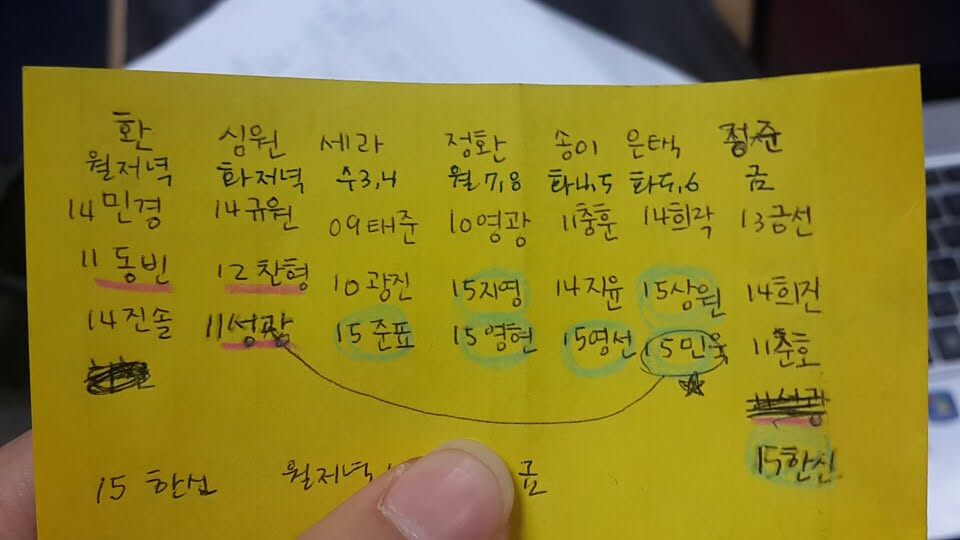 환 심원 세라 정환 송이 은택 정준
월저녁 화저녁 수3,4 월7,8 화4,5 화5,6 금
14민경 14규원 09태준 10영광 11충훈 14희락 13금선
11동빈 12찬형 10광진 15지영 14지윤 15상원 14희진
14진솔 11성광 15준표 15영현 15영선 15민욱 11춘호
15한신
15 한섬 월저녁 표